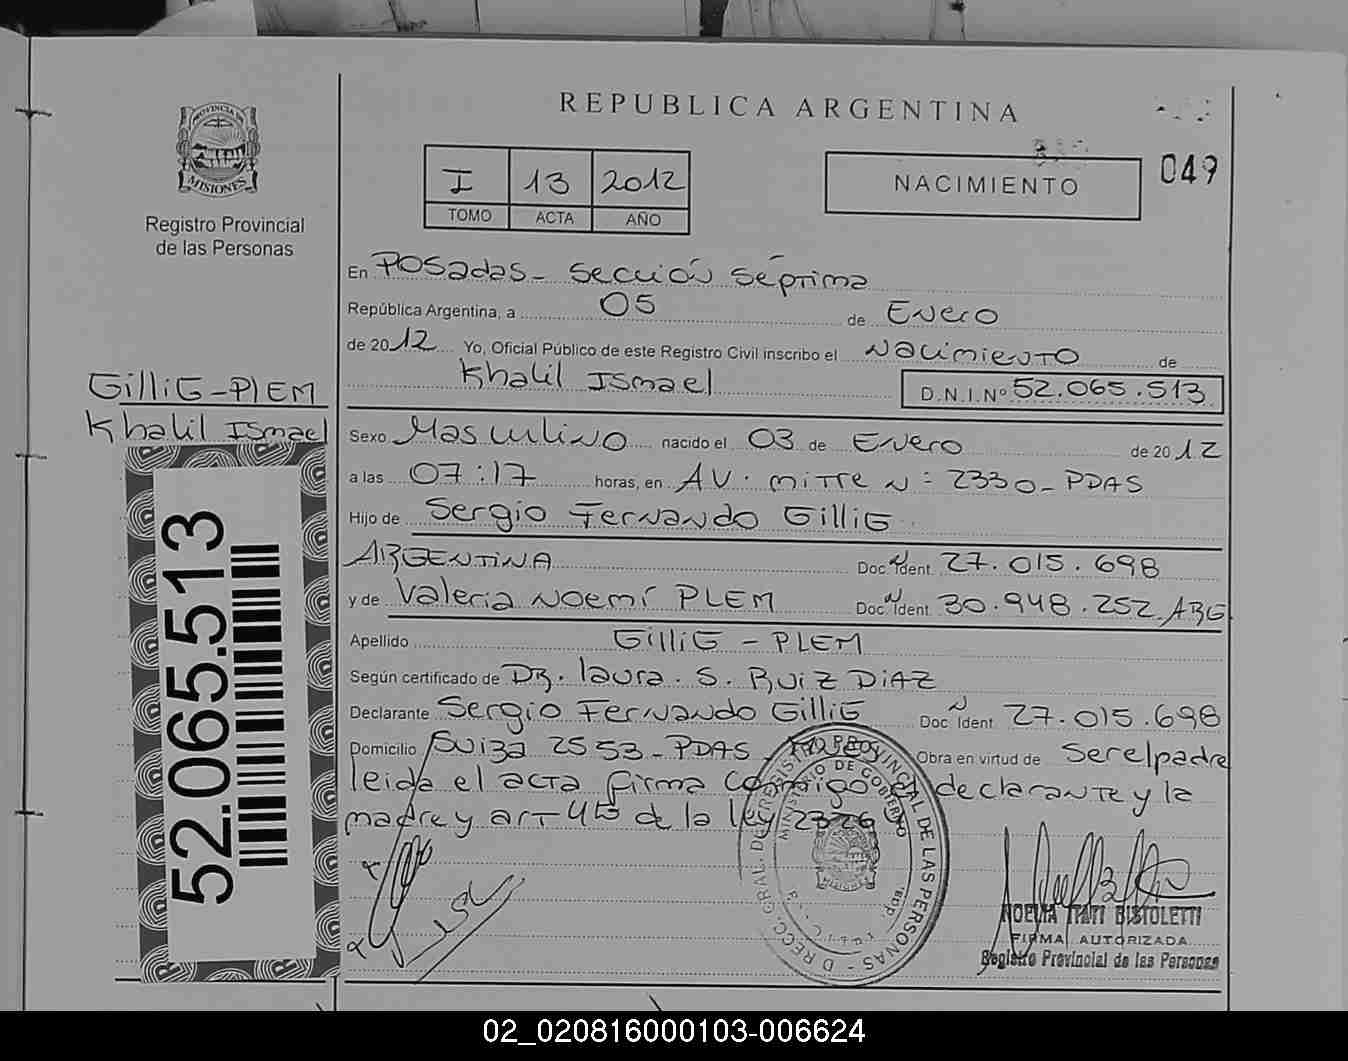 REPUBLICA ARGENTINA
PROVINCIA DE
MISIONES
Registro Provincial
de las Personas
I 13 2012
TOMO ACTA AÑO
NACIMIENTO
049
En Posadas - Sección Séptima
República Argentina, a 05 de Enero
de 2012 Yo, Oficial Público de este Registro Civil inscribo el Nacimiento de
Khalil Ismael D.N.I.Nº 52.065.513
GilliG-PlEM
Khalil Ismael
52.065.513
Sexo Masculino nacido el 03 de Enero de 2012
a las 07:17 horas, en AV. mitre N= 2330- PDAS
Hijo de Sergio Fernando GilliG
ARGENTINA Doc. Ident. N 27.015.698
y de Valeria Noemí PLEM Doc. Ident. N 30.948.252 ARG
Apellido GilliG - PLEM
Según certificado de DR. laura. S. RUIZ DIAZ
Declarante Sergio Fernando GilliG Doc. Ident. N 27.015.698
Domicilio Suiza 2553-PDAS Obra en virtud de Ser el padre
leida el acta firma conmigo el declarante y la
madre y art 45 de la ley 2326
NOEMIA ITATI BISTOLETTI
FIRMA AUTORIZADA
Registro Provincial de las Personas
02_020816000103-006624